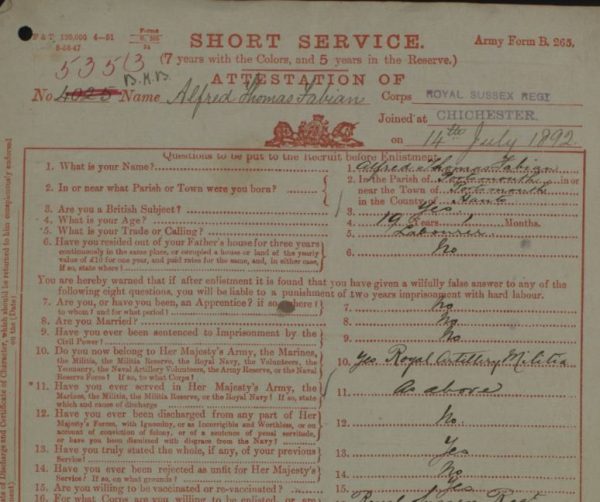 P & T 120,000 4—91 Forms
B. 265
8-58-47 24
SHORT SERVICE.
Army Form B. 265.
(7 years with the Colors, and 5 years in the Reserve.)
5353
B.H.B
ATTESTATION OF
No. 4025 Name Alfred Thomas Fabian Corps ROYAL SUSSEX REGT
Joined at CHICHESTER.
on 14th July 1892
Questions to be put to the Recruit before Enlistment.
1. What is your Name? 1. Alfred Thomas Fabian
2. In or near what Parish or Town were you born? 2. In the Parish of Portsmouth in or
near the Town of Portsmouth
in the County of Hants
3. Are you a British Subject? 3. Yes
4. What is your Age? 4. 19 Years 1 Months.
5. What is your Trade or Calling? 5. Labourer
6. Have you resided out of your Father's house for three years 6. No
continuously in the same place, or occupied a house or land of the yearly
value of £10 for one year, and paid rates for the same, and, in either case,
if so, state where?
You are hereby warned that if after enlistment it is found that you have given a wilfully false answer to any of the
following eight questions, you will be liable to a punishment of two years imprisonment with hard labour.
7. Are you, or have you been, an Apprentice? if so, where? 7. No
to whom? and for what period?
8. Are you Married? 8. No
9. Have you ever been sentenced to Imprisonment by the 9. No
Civil Power?
10. Do you now belong to Her Majesty's Army, the Marines, 10. Yes Royal Artillery Militia
the Militia, the Militia Reserve, the Royal Navy, the Volunteers, the
Yeomanry, the Naval Artillery Volunteers, the Army Reserve, or the Naval
Reserve Force? If so, to what Corps?
*11. Have you ever served in Her Majesty's Army, the 11. As above
Marines, the Militia, the Militia Reserve, or the Royal Navy? If so, state
which and cause of discharge
12. Have you ever been discharged from any part of Her 12. No.
Majesty's Forces, with Ignominy, or as Incorrigible and Worthless, or on
account of conviction of felony, or of a sentence of penal servitude,
or have you been dismissed with disgrace from the Navy?
13. Have you truly stated the whole, if any, of your previous 13. Yes
Service?
14. Have you ever been rejected as unfit for Her Majesty's 14. No
Service? If so, on what grounds?
15. Are you willing to be vaccinated or re-vaccinated? 15. Yes
16. For what Corps are you willing to be enlisted, or
Discharge and Certificate of Character, which should be returned to him conspicuously endorsed
on the (Date)